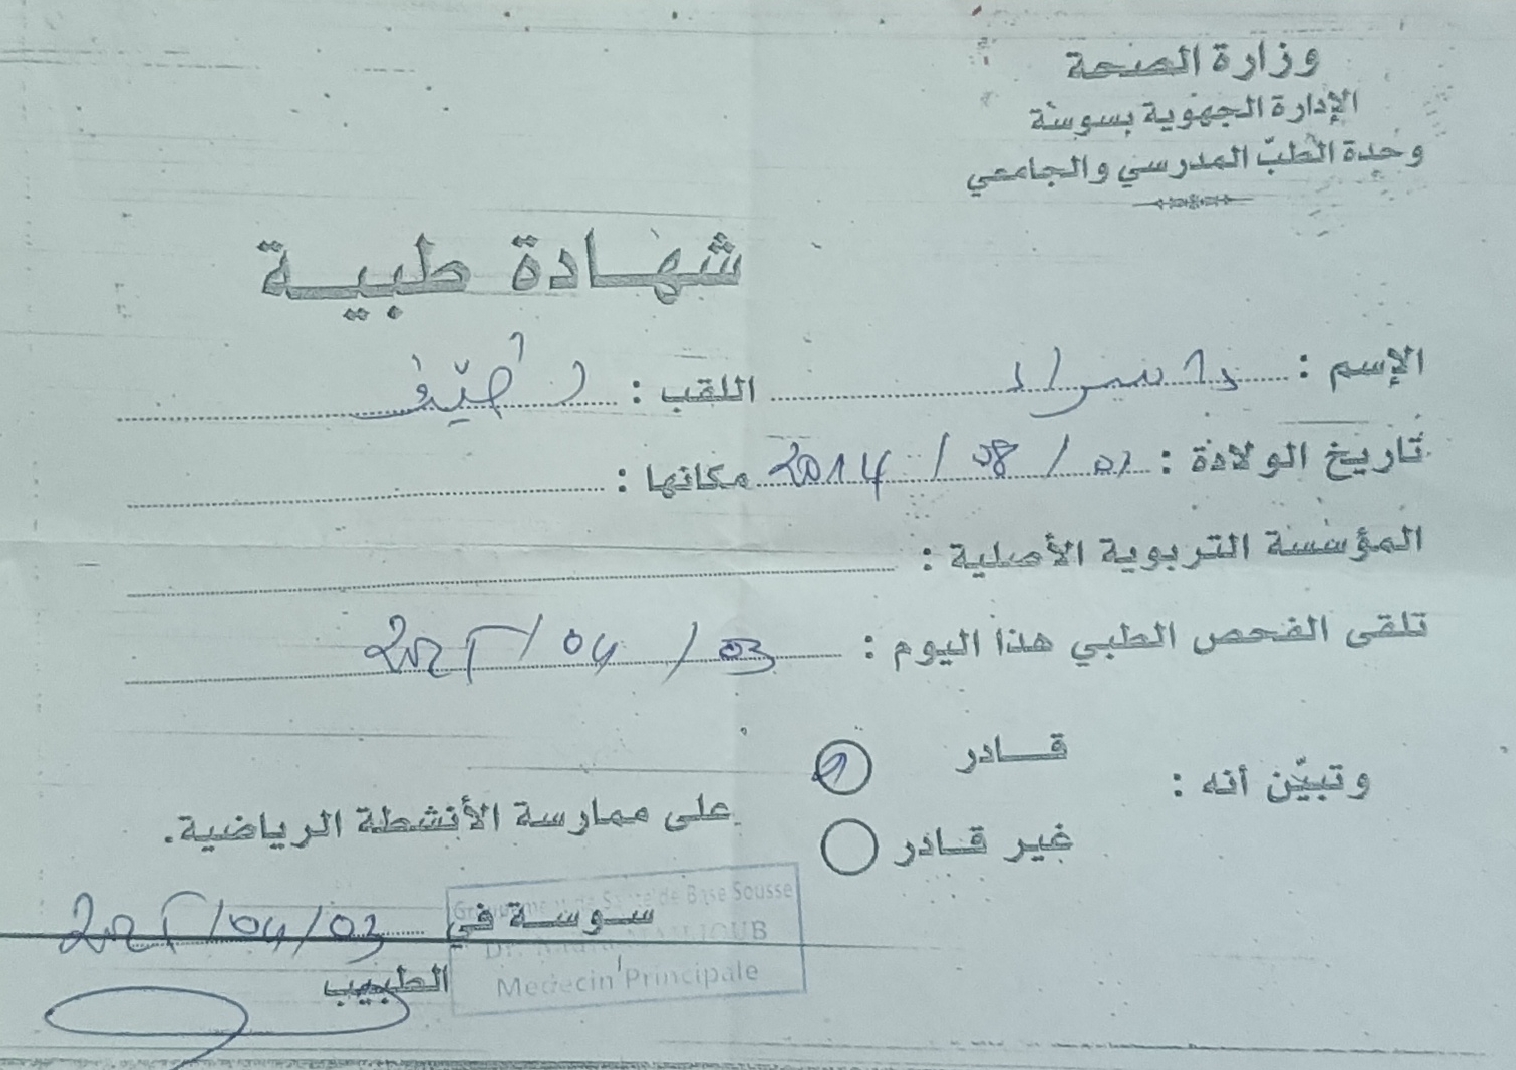 وزارة الصحة
الإدارة الجهوية بسوسة
وحدة الطبّ المدرسي والجامعي
شهادة طبية
الإسم : اللقب :
تاريخ الولادة : 08 / 2014 مكانها :
المؤسسة التربوية الأصلية :
تلقى الفحص الطبي هذا اليوم : 03 / 04 / 2025
وتبيّن أنه : قادر
غير قادر
على ممارسة الأنشطة الرياضية.
سوسة في 03/04/2025
الطبيب
Groupement de Santé de Base Sousse
Dr. MAHJOUB
Medecin Principale